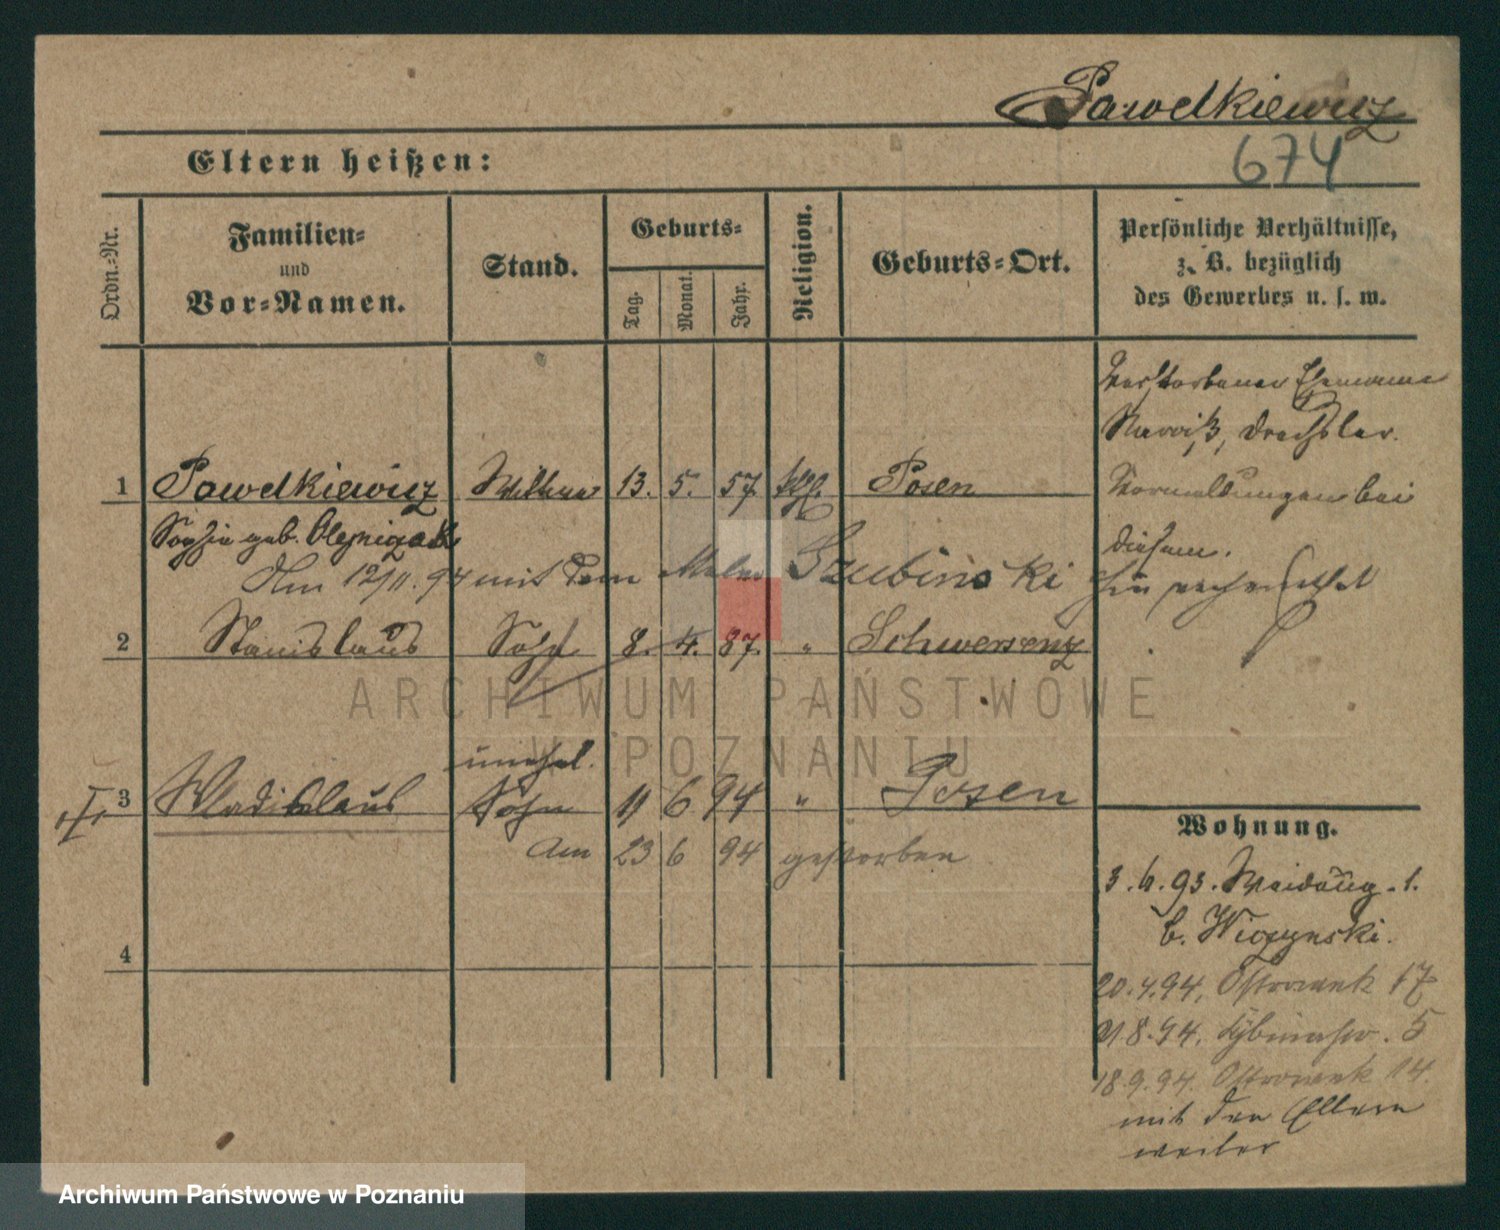 Pawelkiewicz
674
Eltern heißen:
Ordn.-Nr.
Familien-
und
Vor-Namen.
Stand.
Geburts-
Tag.
Monat.
Jahr.
Religion.
Geburts-Ort.
Persönliche Verhältnisse,
z. B. bezüglich
des Gewerbes u. s. w.
Verstorbener Ehemann
Narciß, Drechsler.
Vormeldungen bei
diesem.
1 Pawelkiewicz Wittwe 13. 5. 57 kth. Posen
Sophie geb. Olejniczak
Am 12/11. 94 mit dem Maler Szubinski hier verheirathet
2 Stanislaus Sohn 8. 4. 87. " Schwersenz
unehel.
3 Wladislaus Sohn 11 6 94 " Posen
Am 23 6 94 gestorben
4
Wohnung.
3. 4. 93. 1.
b. Wiczynski.
20. 4. 94. Ostrowek 17
21. 8. 94. 5
18. 9. 94. Ostrowek 14.
mit den Eltern
weiter
ARCHIWUM PAŃSTWOWE
W POZNANIU
Archiwum Państwowe w Poznaniu